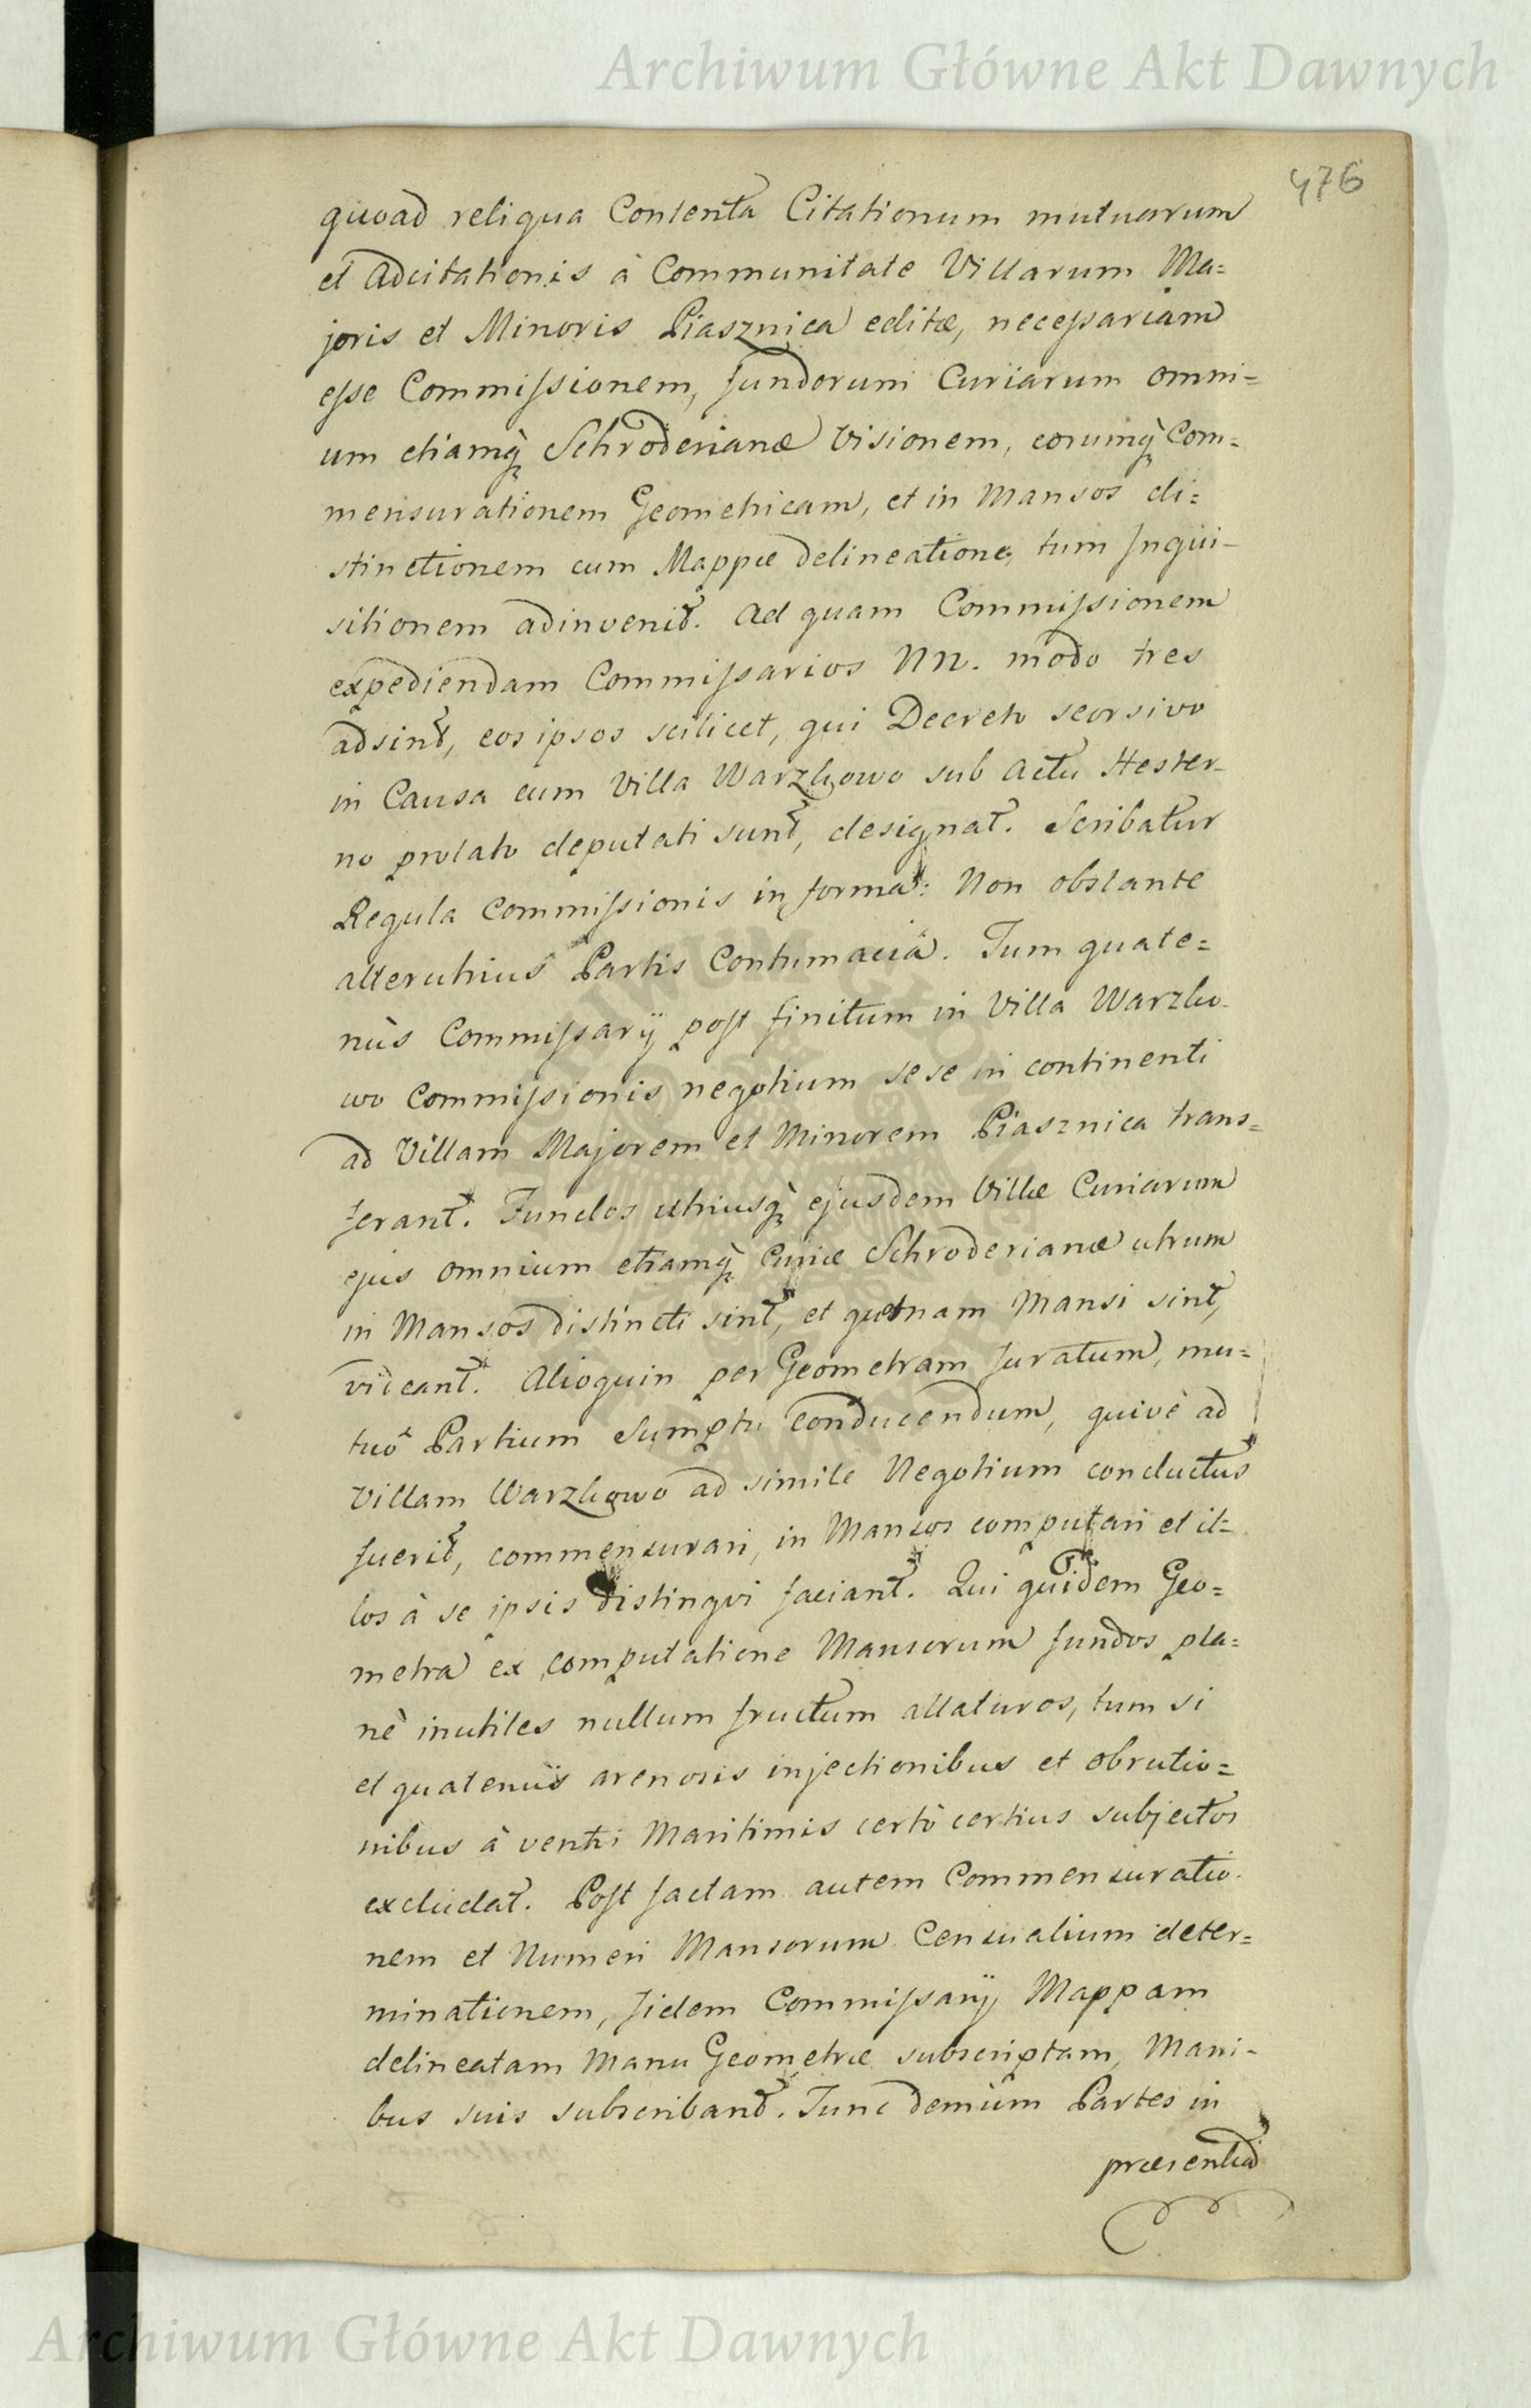 Archiwum Główne Akt Dawnych
476
quoad reliqua Contenta Citationum mutuarum
et Adcitationis à Communitate Villarum Ma=
joris et Minoris Piasznica editæ, necessariam
esse Commissionem, fundorum Curiarum omni=
um etiamq̀ Schroderianæ Visionem, eorumq̀ Com=
mensurationem Geometricam, et in Mansos di=
stinctionem cum Mappæ delineatione, tum Inqui-
sitionem adinvenit. Ad quam Commissionem
expediendam Commissarios NN. modo tres
adsint, eos ipsos scilicet, qui Decreto seorsivo
in Causa cum Villa Warzkowo sub Actu Hester-
no prolato deputati sunt, designat. Scribatur
Regula Commissionis in forma: Non obstante
alterutrius Partis Contumaciâ. Tum quate=
nùs Commissarÿ post finitum in Villa Warzko-
wo Commissionis negotium sese in continenti
ad Villam Majorem et Minorem Piasznica trans=
ferant. Fundos utriusq̀ ejusdem Villæ Curiarum
ejus omnium etiamq̀ Curiæ Schroderianæ utrum
in Mansos distincti sint, et quotnam Mansi sint,
videant. Alioquin per Geometram Juratum, mu=
tuô Partium Sumptu conducendum, quivè ad
Villam Warzkowo ad simile Negotium conductus
fuerit, commensurari, in Mansos computari et il=
los à se ipsis distingvi faciant. Qui quidem Geo=
metra ex computatione Mansorum fundos pla=
nè inutiles nullum fructum allaturos, tum si
et quatenùs arenosis injectionibus et obrutio=
nibus à ventis Maritimis certò certius subjectos
excludat. Post factam autem Commensuratio-
nem et Numeri Mansorum Censualium deter=
minationem, Iidem Commissarÿ Mappam
delineatam Manu Geometræ subscriptam, Mani-
bus suis subscribant. Tunc demùm Partes in
præsentia
Archiwum Główne Akt Dawnych